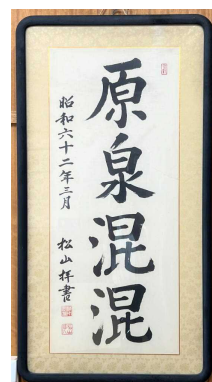 原泉混混
昭和六十二年三月
松山祥書